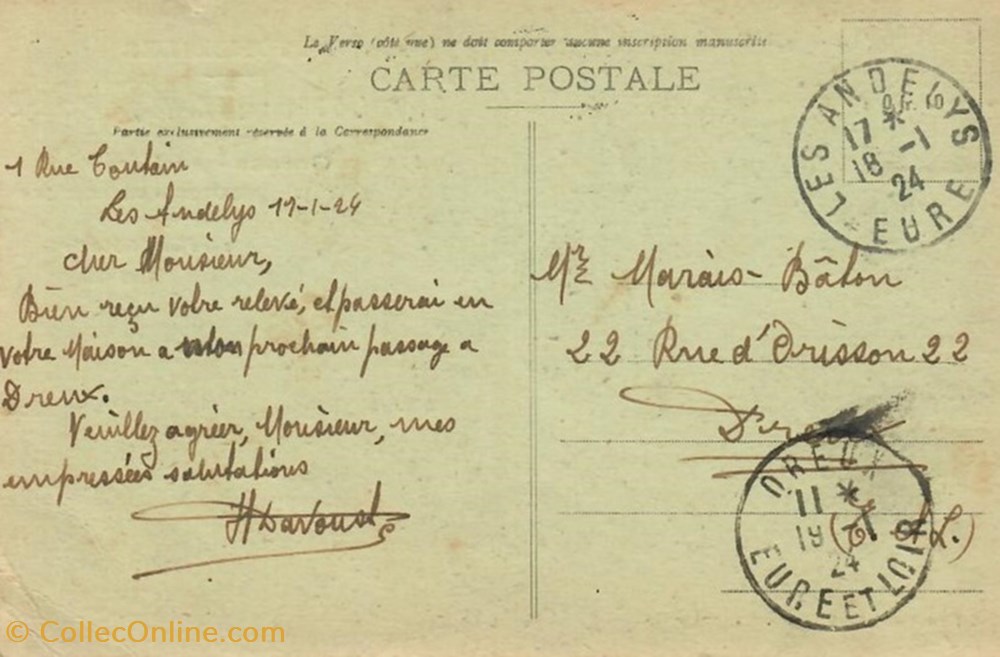 Le Verso (côté vue) ne doit comporter aucune inscription manuscrite
CARTE POSTALE
Partie exclusivement réservée à la Correspondance
1 Rue Toutain
Les Andelys 17-1-24
cher Monsieur,
Bien reçu votre relevé, et passerai en
votre Maison a mon prochain passage a
Dreux.
Veuillez agréer, Monsieur, mes
empressées salutations
HDavoust
LES ANDELYS
17 *
18 -1
24
EURE
Mr Marais-Bâton
22 Rue d'Orisson 22
Dreux
(E & L.)
DREUX
11 *
19 -1
24
EURE ET LOIR
© CollecOnline.com